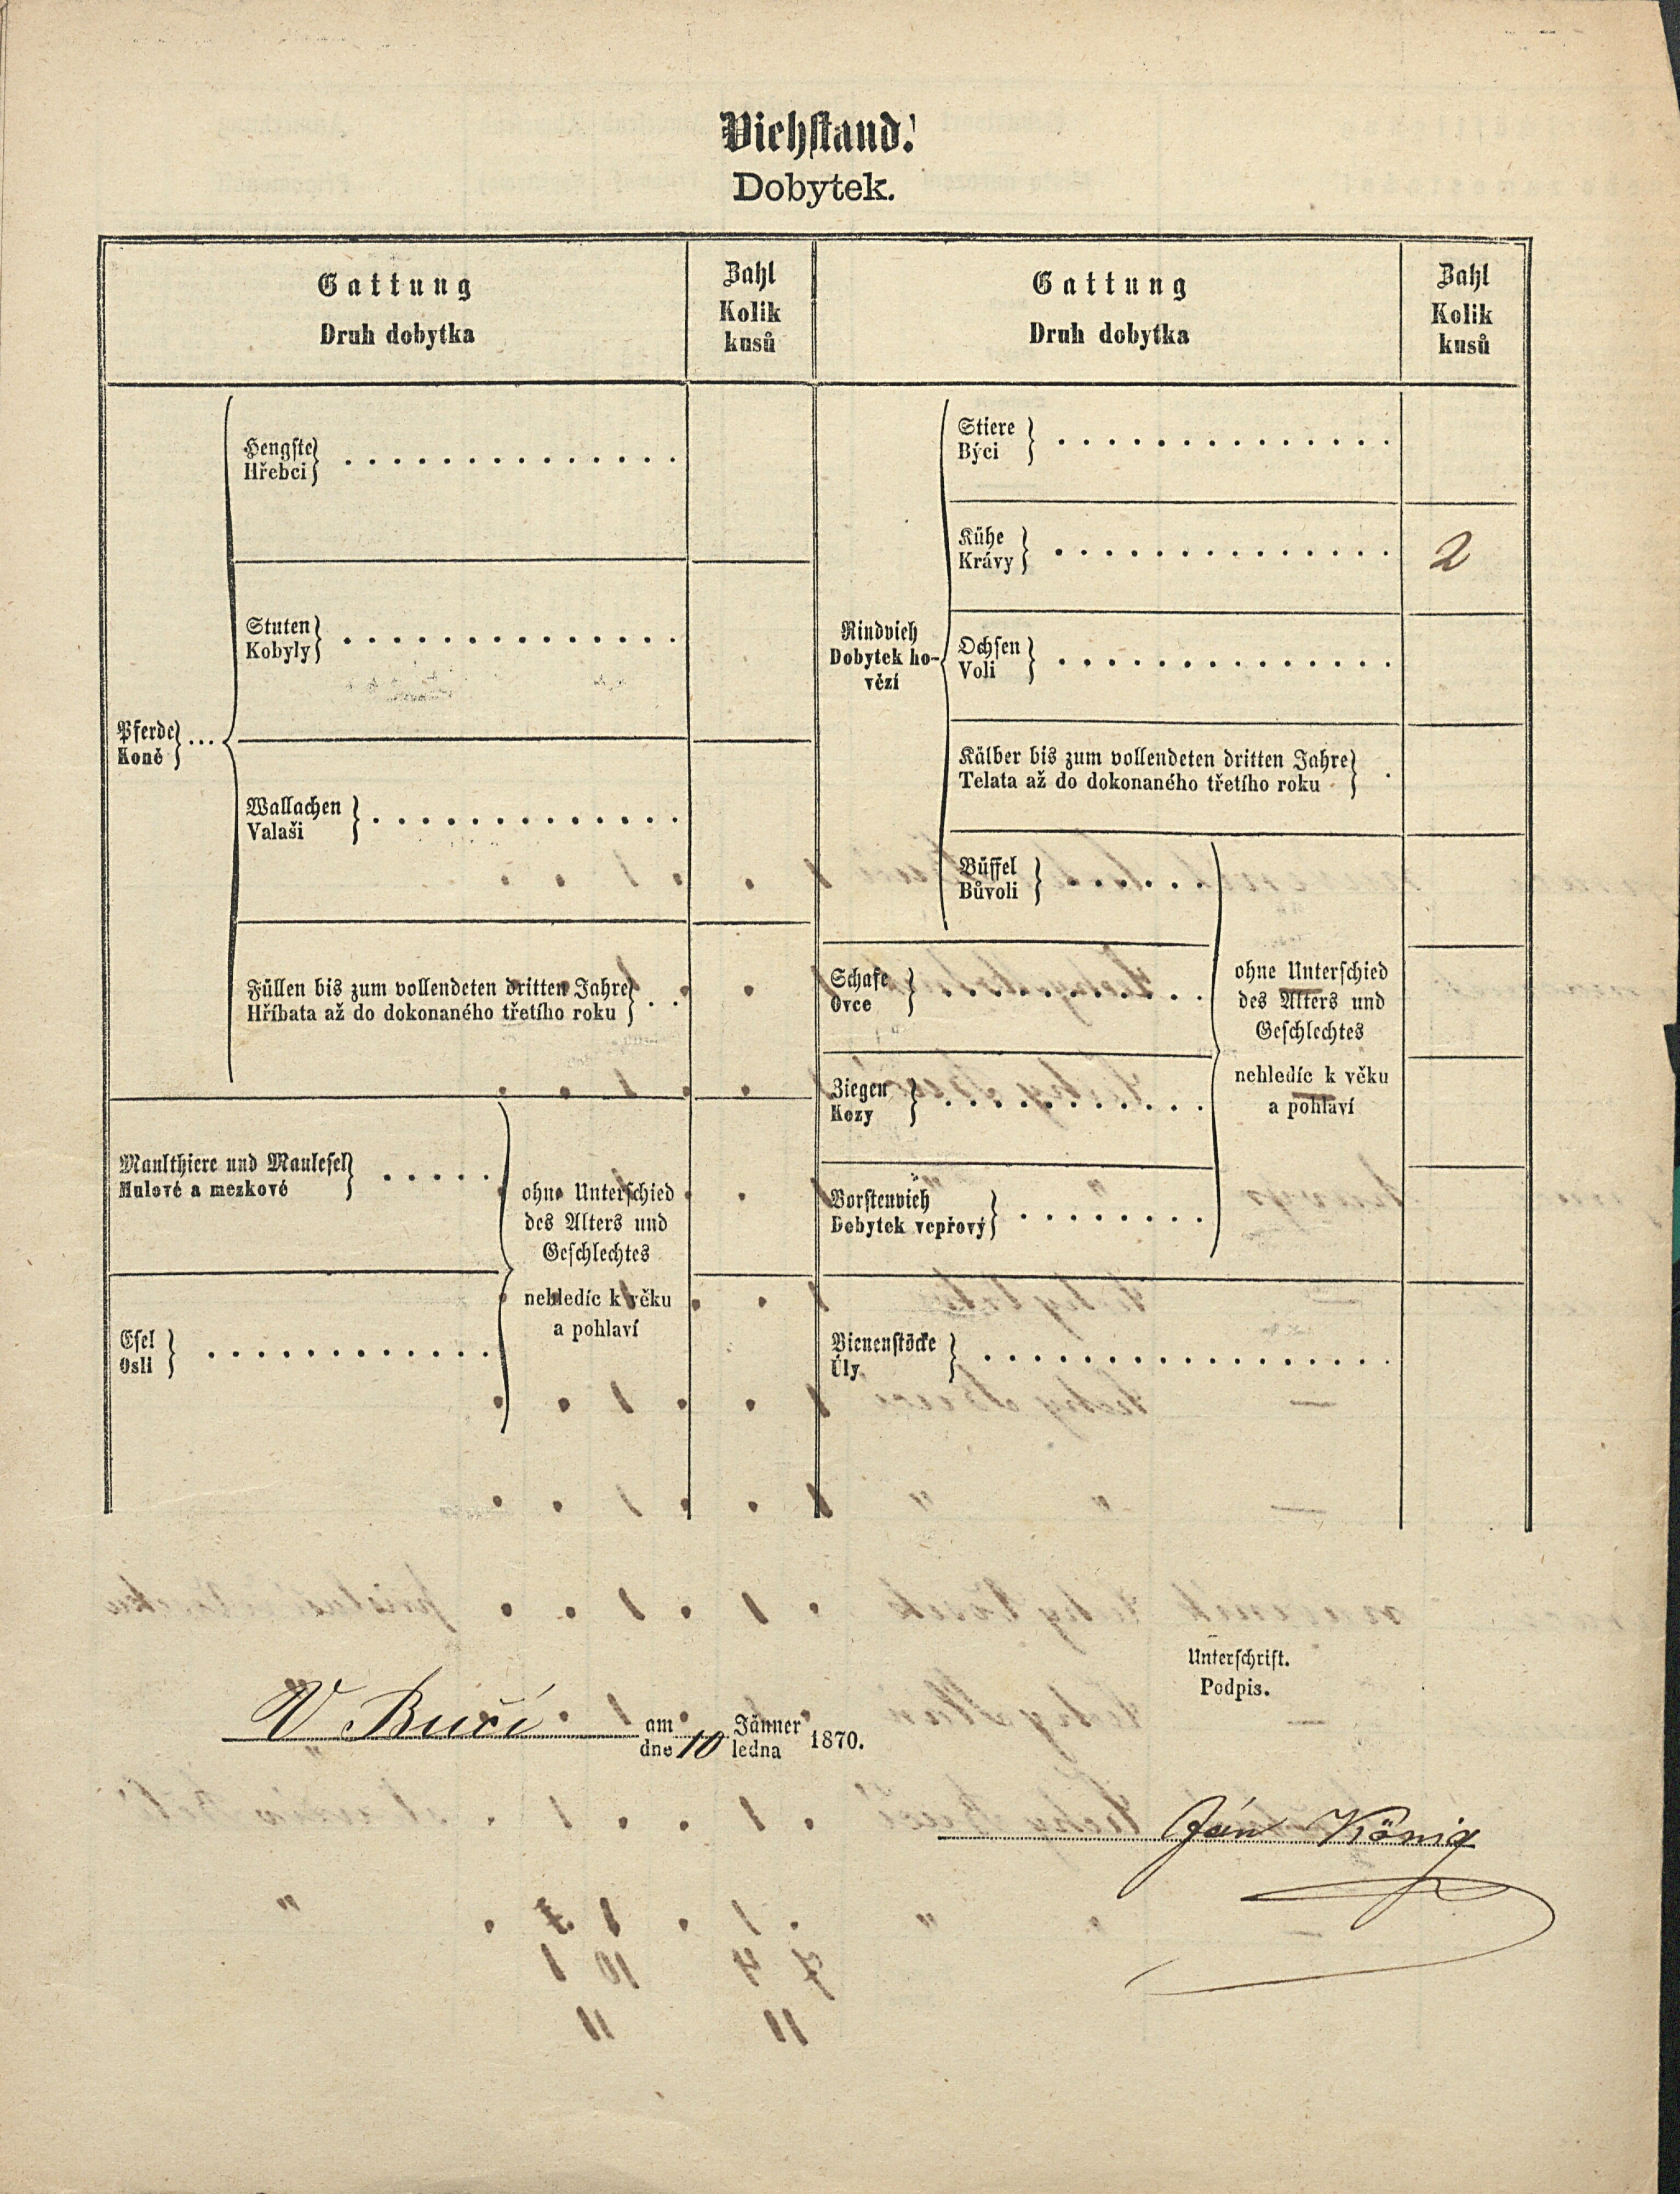 Viehstand.
Dobytek.
Gattung
Druh dobytka
Zahl
Kolik
kusů
Gattung
Druh dobytka
Zahl
Kolik
kusů
Pferde
Koně
Hengste
Hřebci
Stuten
Kobyly
Wallachen
Valaši
Füllen bis zum vollendeten dritten Jahre
Hříbata až do dokonaného třetího roku
Maulthiere und Maulesel
Mulové a mezkové
Esel
Osli
ohne Unterschied
des Alters und
Geschlechtes
nehledíc k věku
a pohlaví
Rindvieh
Dobytek ho-
vězí
Stiere
Býci
Kühe
Krávy
2
Ochsen
Voli
Kälber bis zum vollendeten dritten Jahre
Telata až do dokonaného třetího roku
Büffel
Bůvoli
Schafe
Ovce
Ziegen
Kozy
Borstenvieh
Dobytek vepřový
ohne Unterschied
des Alters und
Geschlechtes
nehledíc k věku
a pohlaví
Bienenstöcke
Úly
Unterschrift.
Podpis.
V Bučí am Jänner 1870.
dne 10 ledna
Ján König